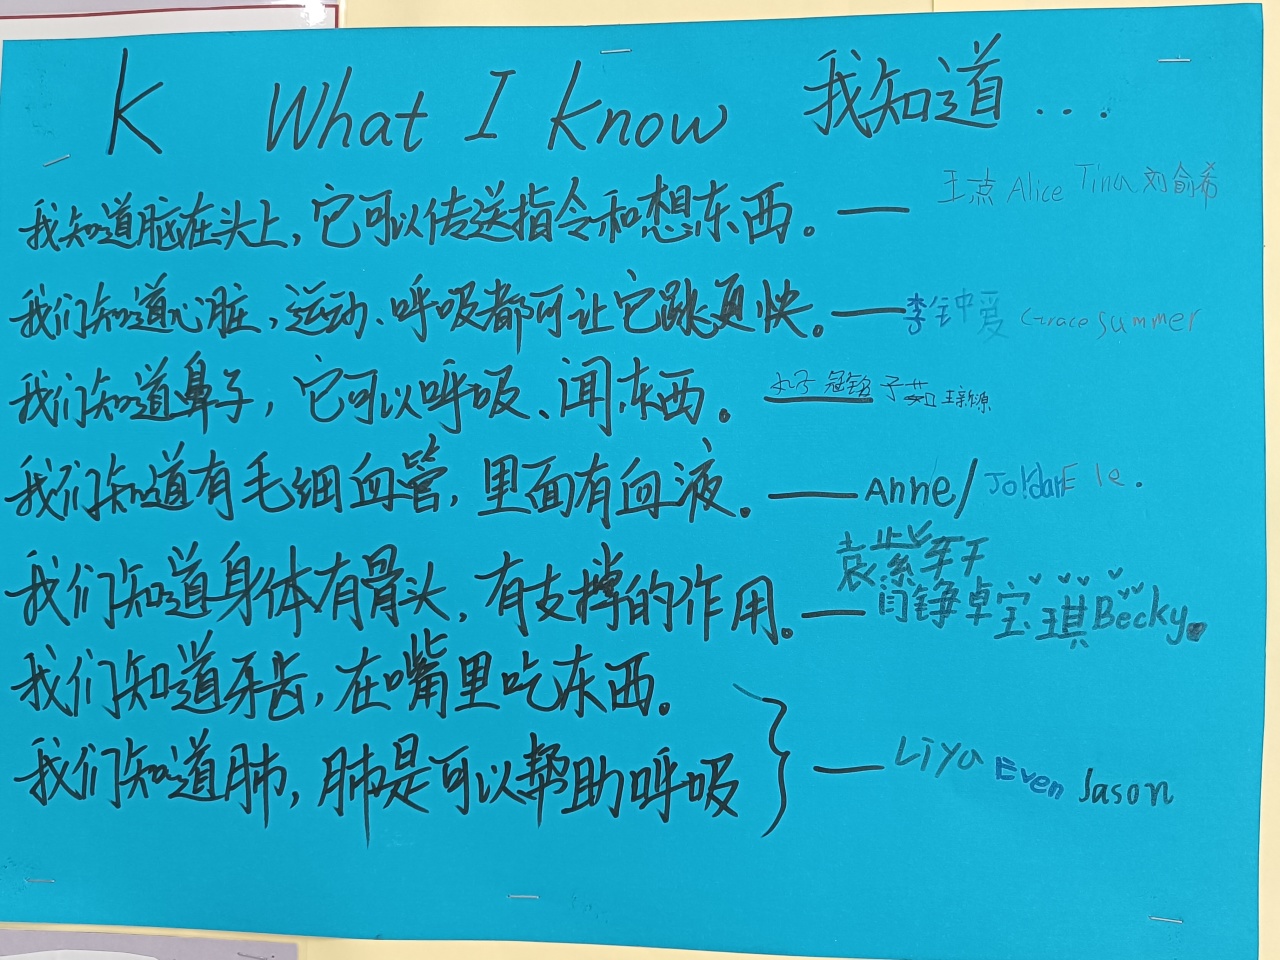 K What I know 我知道...
我知道脑在头上，它可以传送指令和想东西。— 王点 Alice Tina 刘俞希
我们知道心脏，运动、呼吸都可让它跳更快。— 李钟爱 Grace summer
我们知道鼻子，它可以呼吸、闻东西。 子茹
我们知道有毛细血管，里面有血液。— Anne/
袁紫轩
我们知道身体有骨头，有支撑的作用。— 闫铮卓 宝琪 Becky.
我们知道牙齿，在嘴里吃东西。
我们知道肺，肺是可以帮助呼吸 — Liya Even Jason